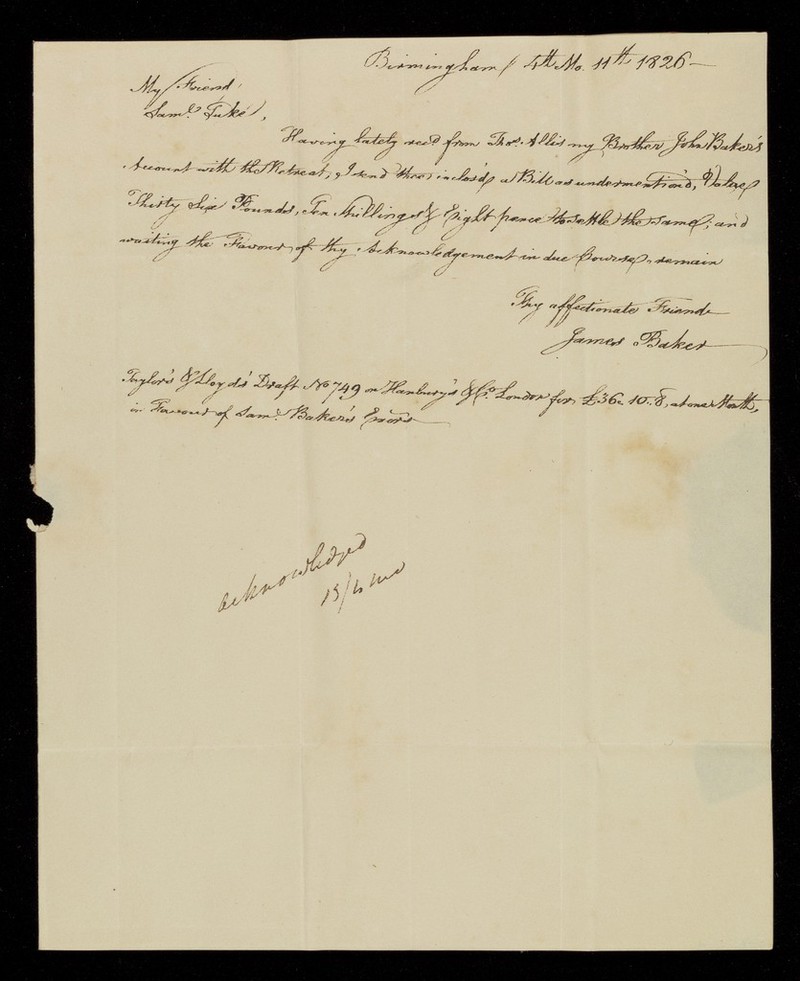 Birmingham / 4th Mo. 11th 1826 –
My Friend,
Saml. Tuke,
Having lately recd from Thos. Allis my Brother John Baker's
Account with the Retreat, I send thee inclos'd a Bill as undermention'd, Value
Thirty Six Pounds, Ten Shillings & Eight pence to settle the same; and
waiting the Favour of thy Acknowledgement in due Course, remain
Thy affectionate Friend
James Baker
Taylor's & Lloyds's Draft No 749 on Hanbury's & Co. London for £36. 10. 8, at one Month,
in Favour of Saml. Baker's Exors
acknowledged
13/4 mo